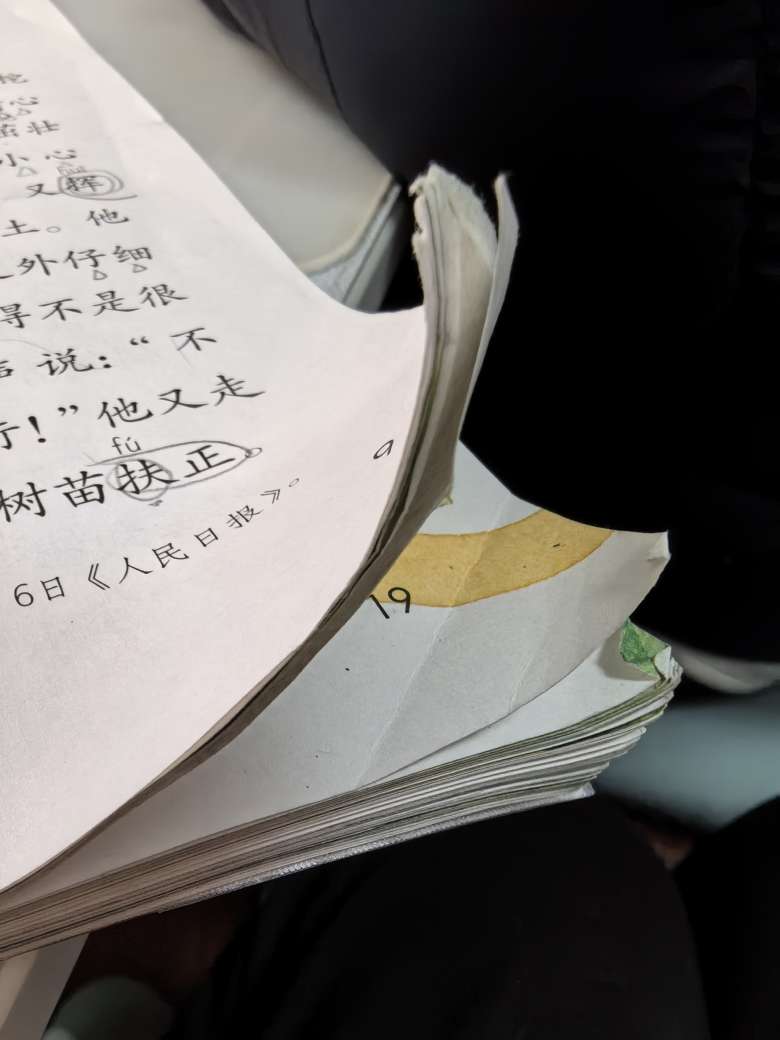 心
苗壮
小心
又挥
土。他
外仔细
得不是很
说：“不
行！”他又走
fú
树苗扶正。
6日《人民日报》。
9
19